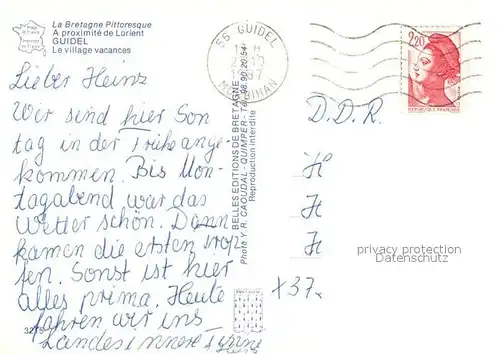 La Bretagne Pittoresque
A proximité de Lorient
GUIDEL
Le village vacances
56 GUIDEL
MORBIHAN
2,20
REPUBLIQUE FRANÇAISE
Lieber Heinz
Wir sind hier Son
tag in der Frühe ange-
kommen. Bis Mon-
tagabend war das
Wetter schön. Dann
kamen die ersten Trop
fen. Sonst ist hier
alles prima. Heute
fahren wir ins
Landesinnere
BELLES EDITIONS DE BRETAGNE
Photo Y. R. CAOUDAL - QUIMPER - Tél. 98.90.20.54
Reproduction interdite
D.D.R.
H
H
H
privacy protection
Datenschutz
+37.